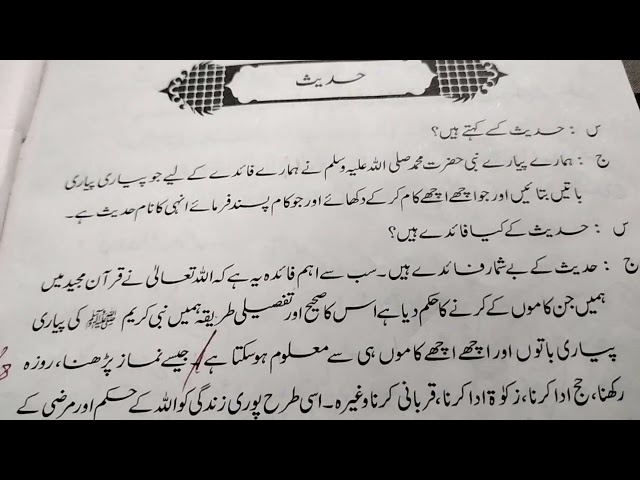 حدیث
س : حدیث کسے کہتے ہیں؟
ج : ہمارے پیارے نبی حضرت محمد صلی اللہ علیہ وسلم نے ہمارے فائدے کے لیے جو پیاری پیاری
باتیں بتائیں اور جو اچھے اچھے کام کر کے دکھائے اور جو کام پسند فرمائے انہی کا نام حدیث ہے۔
س : حدیث کے کیا فائدے ہیں؟
ج : حدیث کے بے شمار فائدے ہیں۔ سب سے اہم فائدہ یہ ہے کہ اللہ تعالیٰ نے قرآن مجید میں
ہمیں جن کاموں کے کرنے کا حکم دیا ہے اس کا صحیح اور تفصیلی طریقہ ہمیں نبی کریم ﷺ کی پیاری
پیاری باتوں اور اچھے اچھے کاموں ہی سے معلوم ہو سکتا ہے۔ جیسے نماز پڑھنا، روزہ
رکھنا، حج ادا کرنا، زکوٰۃ ادا کرنا، قربانی کرنا وغیرہ۔ اسی طرح پوری زندگی کو اللہ کے حکم اور مرضی کے